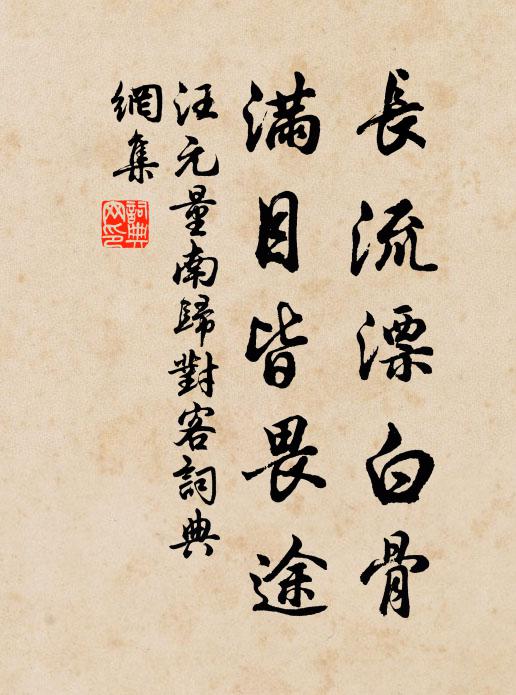 長流漂白骨
滿目皆畏途
汪元量南歸對客詞典
網集
詞典
网印